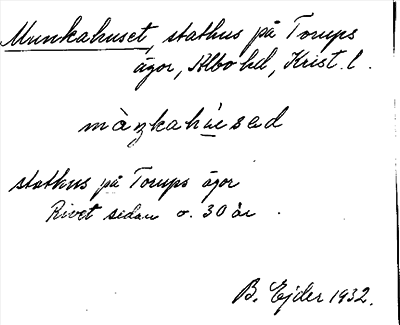 Munkahuset, stathus på Torups
ägor, Albo hd, Krist. l.
màŋkahùsad
stathus på Torups ägor
Rivet sedan o. 30 år.
B. Ejder 1932.